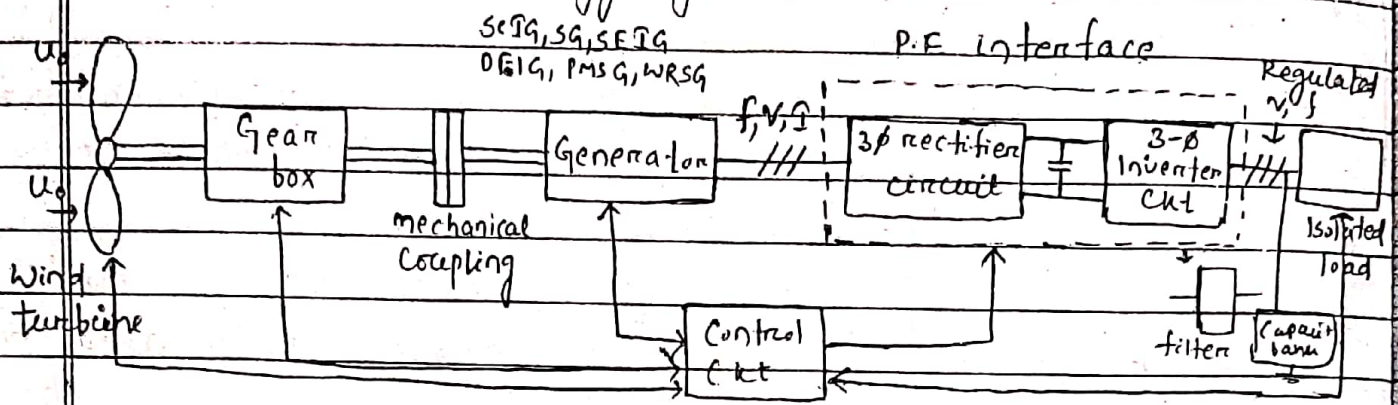 SCIG, SG, SEIG
DFIG, PMSG, WRSG
P.E interface
Regulated
v, f
u₀
u₀
Gear
box
mechanical
Coupling
Generator
f, V, I
3ϕ rectifier
circuit
3-ϕ
Inverter
Ckt
Isolated
load
Wind
turbine
Control
Ckt
filter
Capacit
bank